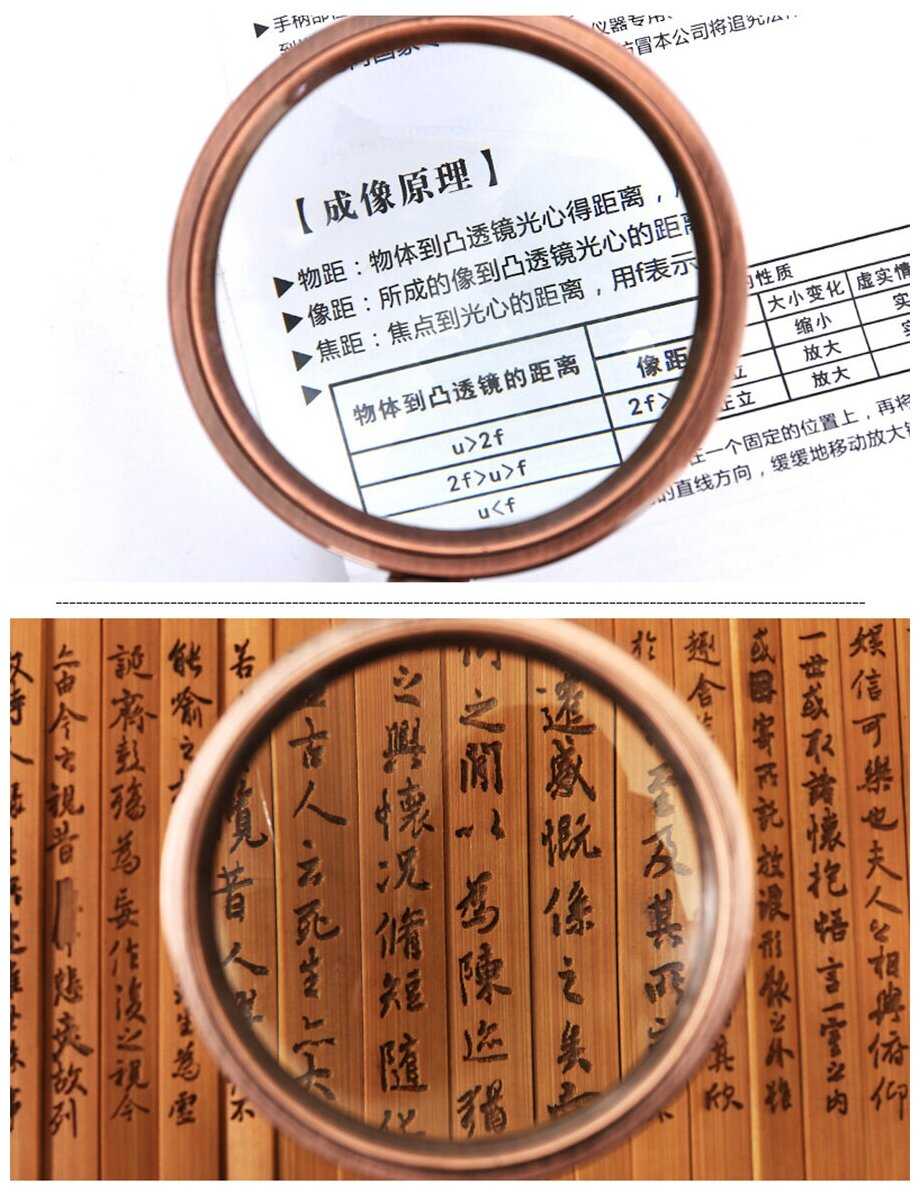 手柄部位
仪器专用、
仿冒本公司将追究法律
【成像原理】
▶物距：物体到凸透镜光心得距离，
▶像距：所成的像到凸透镜光心的距离
▶焦距：焦点到光心的距离，用f表示
的性质
物体到凸透镜的距离 像距 大小变化 虚实情
u>2f 2f> 立 缩小 实
2f>u>f 立 放大 实
u<f 正立 放大
在一个固定的位置上，再将
的直线方向，缓缓地移动放大镜
娱信可樂也夫人之相與俯仰
一世或取諸懷抱悟言一室之内
或因寄所託放浪形骸之外雖
趣舍
於
至及其所
其欣
遷感慨係之矣
之間以為陳迹猶
之興懷况脩短隨化
古人云死生亦大
覽昔人興
若
不
能喻之
生為虚
誕齊彭殤為妄作後之視今
亦由今之視昔 悲夫故列